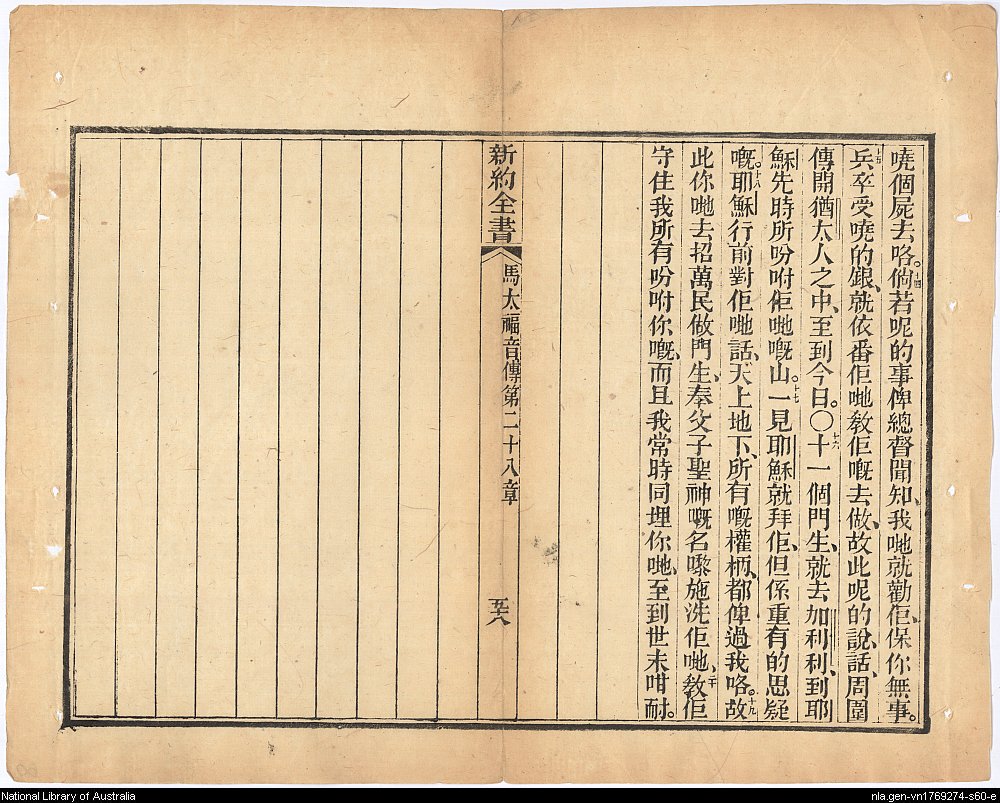 嘵個屍去咯。十四倘若呢的事俾總督聞知、我哋就勸佢、保你無事。
十五兵卒受嘵的銀、就依番佢哋教佢嘅去做、故此呢的說話、周圍
傳開猶太人之中、至到今日。〇十六十一個門生、就去加利利、到耶
穌先時所吩咐佢哋嘅山。十七一見耶穌就拜佢、但係重有的思疑
嘅。十八耶穌行前對佢哋話、天上地下、所有嘅權柄、都俾過我咯。十九故
此你哋去招萬民做門生、奉父子聖神嘅名嚟施洗佢哋、二十教佢
守住我所有吩咐你嘅、而且我常時同埋你哋、至到世末咁耐。
新約全書
馬太福音傳第二十八章
五六
National Library of Australia
nla.gen-vn1769274-s60-e